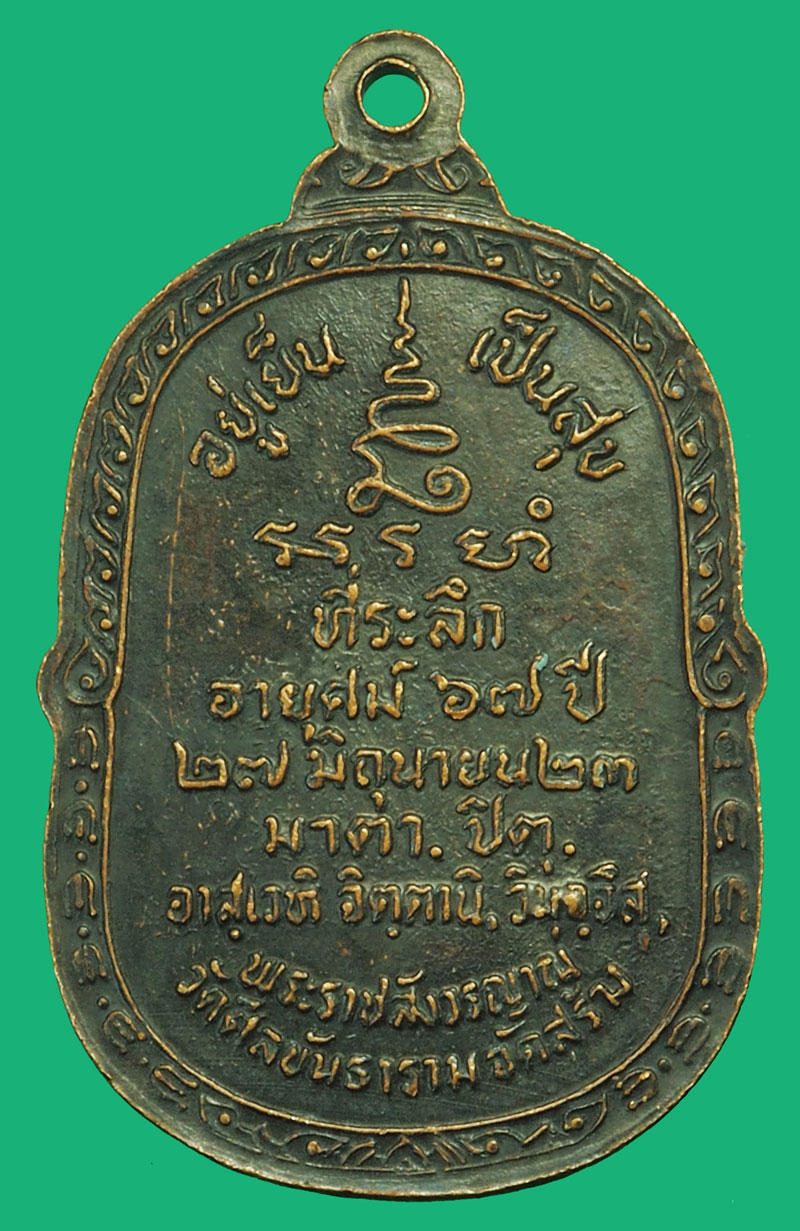 อยู่เย็น เป็นสุข
ที่ระลึก
อายุศม์ ๖๗ ปี
๒๗ มิถุนายน๒๓
มาตา. ปิตุ.
อาสฺเวหิ จิตฺตานิ, วิมุจฺจึสุ,
พระราชสังวรญาณ
วัดศีลขันธาราม จัดสร้าง